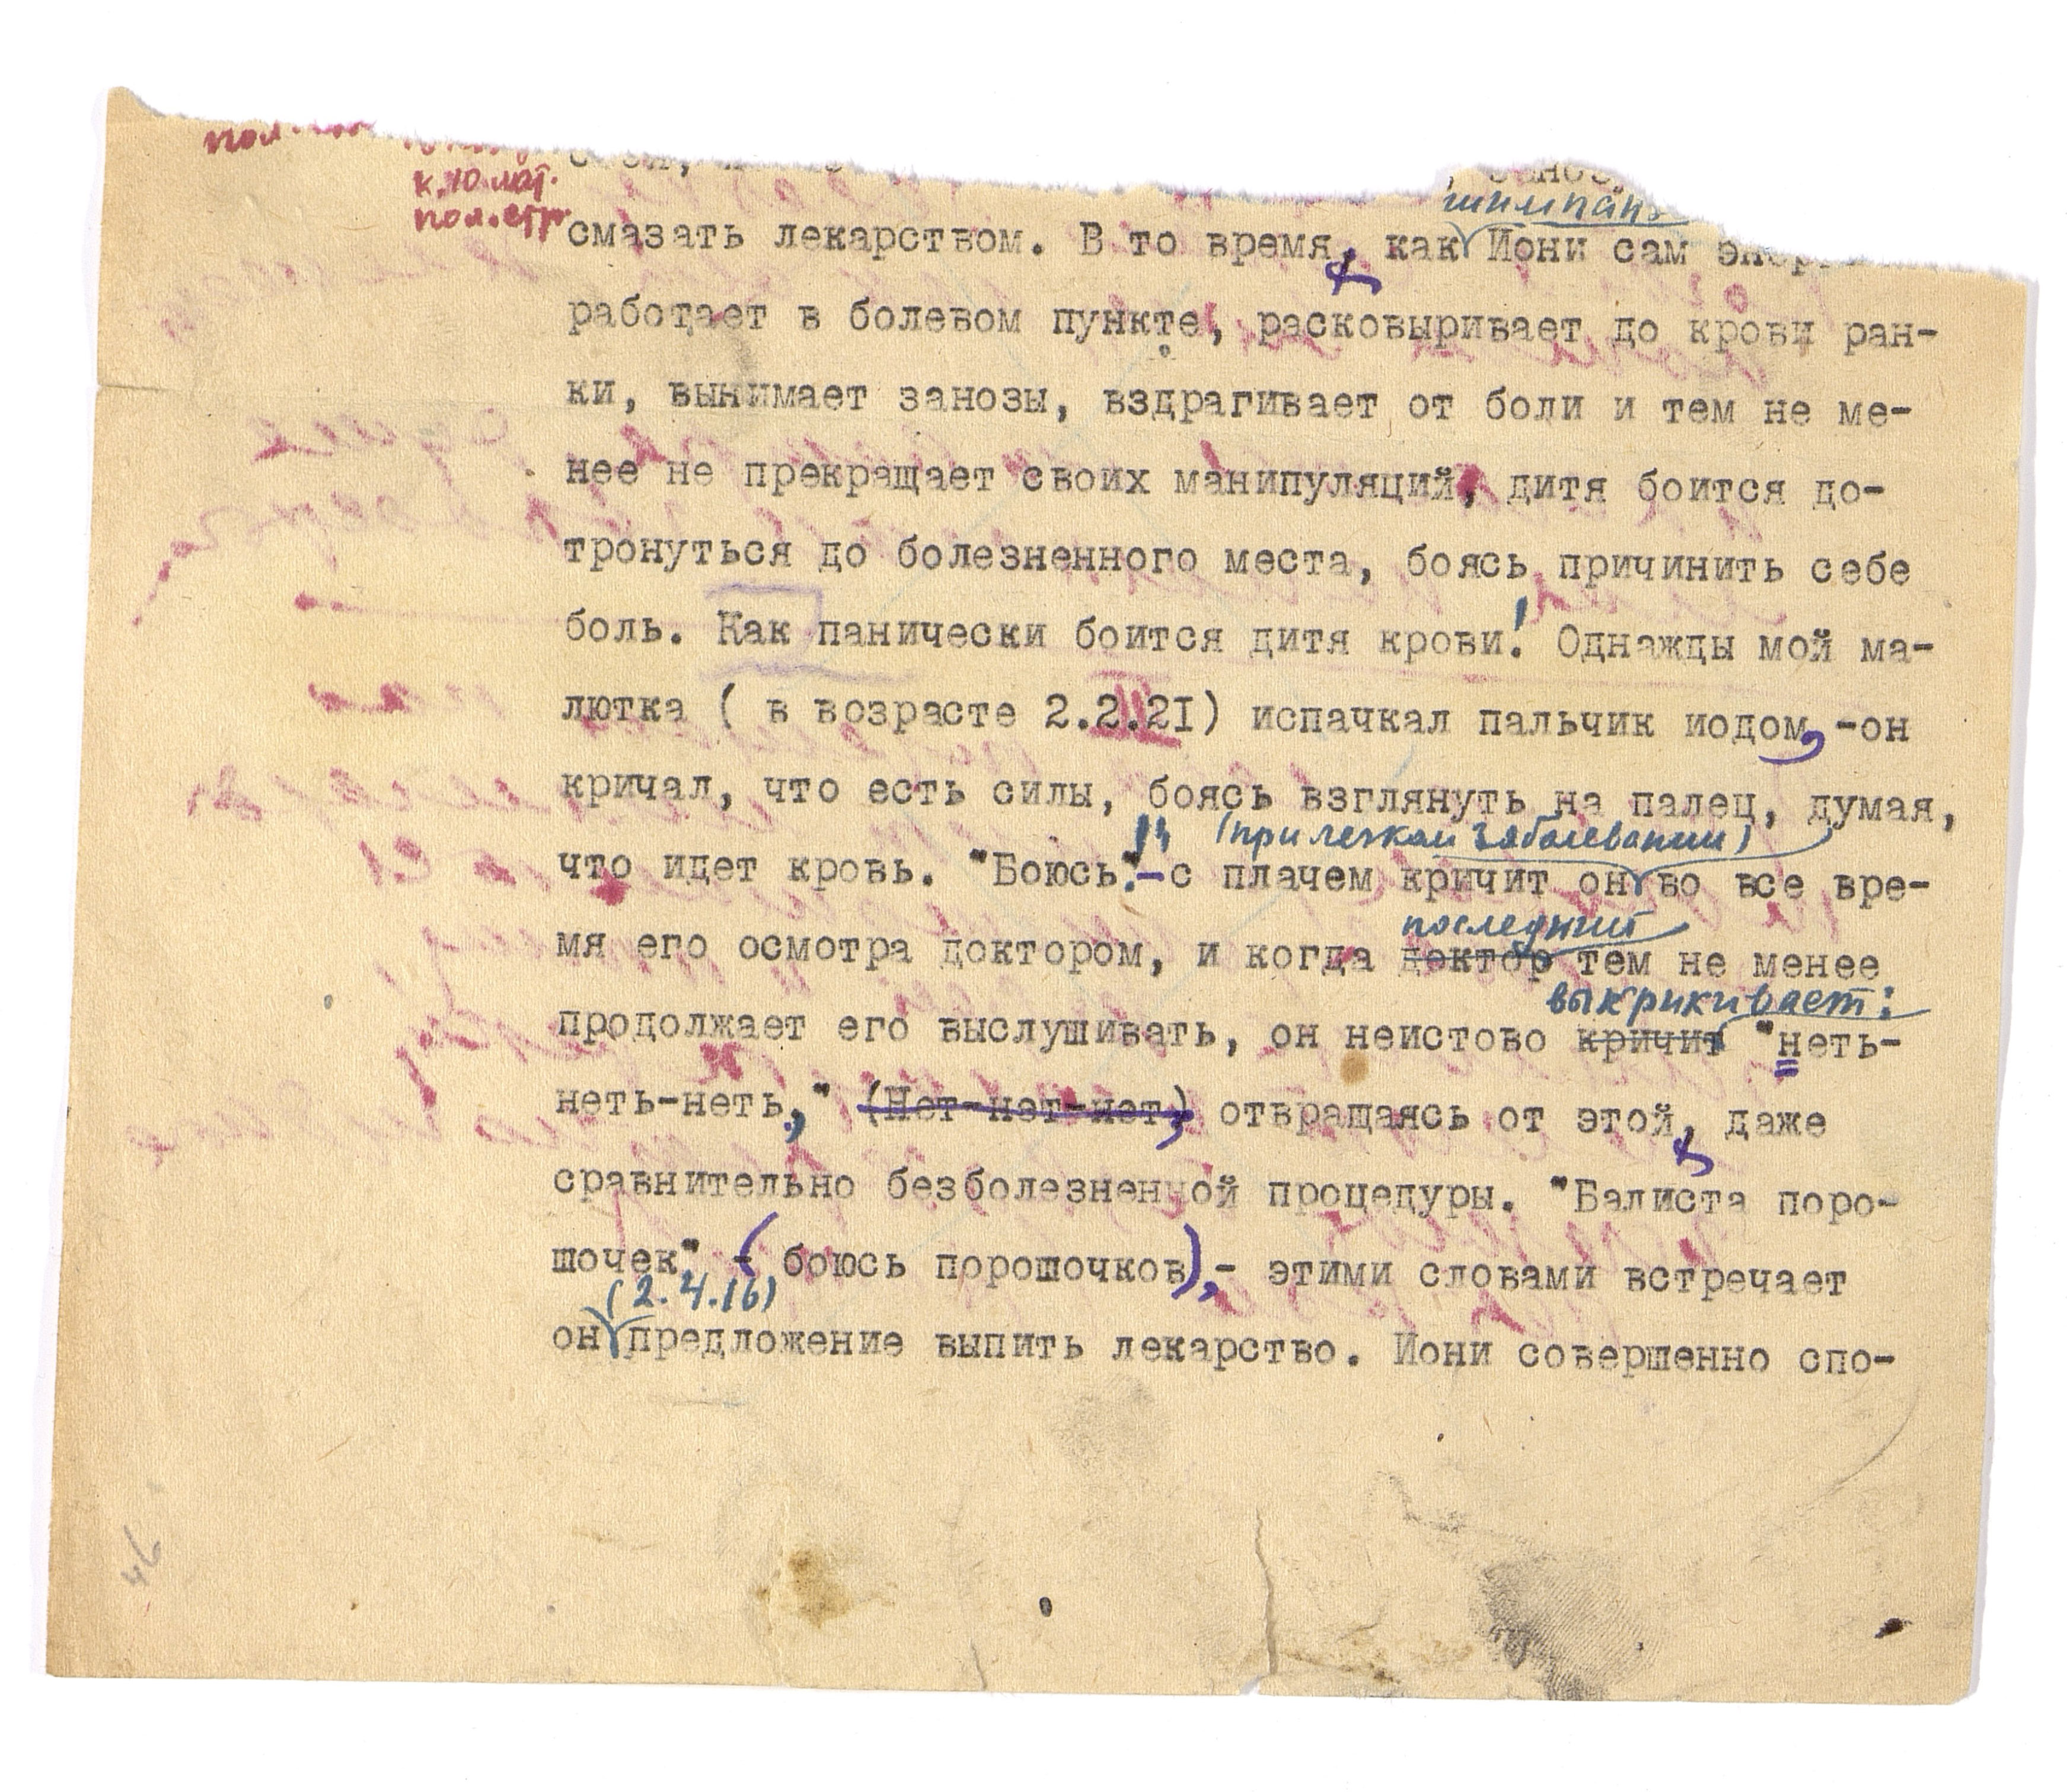 к.10 лат.
пол. стр.
шимпанз
смазать лекарством. В то время, как Иони сам
работает в болевом пункте, расковыривает до крови ран-
ки, вынимает занозы, вздрагивает от боли и тем не ме-
нее не прекращает своих манипуляций, дитя боится до-
тронуться до болезненного места, боясь причинить себе
боль. Как панически боится дитя крови! Однажды мой ма-
лютка ( в возрасте 2.2.2I) испачкал пальчик иодом, -он
кричал, что есть силы, боясь взглянуть на палец, думая,
(при легком заболевании)
что идет кровь. "Боюсь!"-с плачем кричит он во все вре-
последний
мя его осмотра доктором, и когда доктор тем не менее
выкрикивает:
продолжает его выслушивать, он неистово кричит "неть-
неть-неть," (Нет-нет-нет) отвращаясь от этой, даже
сравнительно безболезненной процедуры. "Балиста поро-
шочек" ( боюсь порошочков),- этими словами встречает
(2.4.16)
он предложение выпить лекарство. Иони совершенно спо-
46